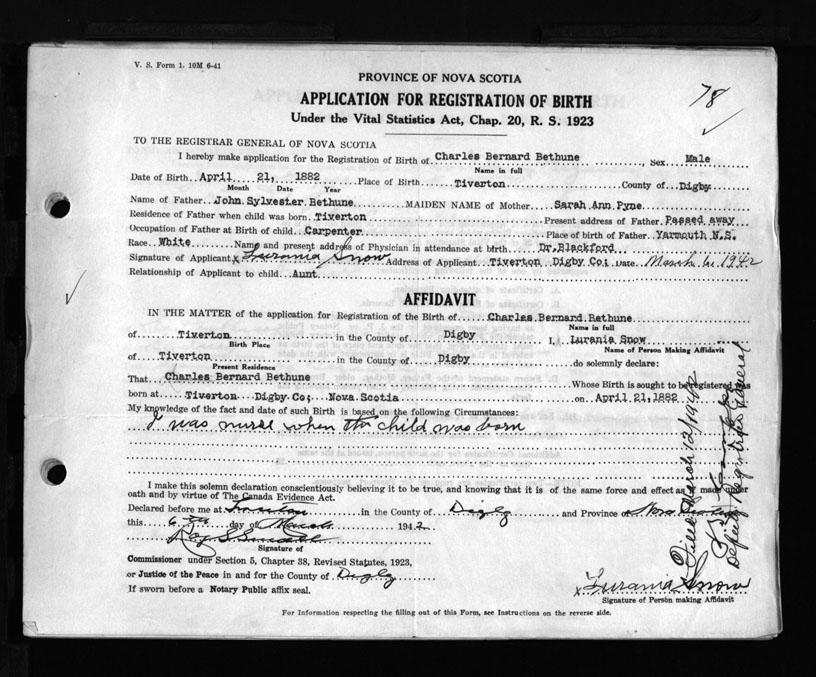 V. S. Form 1. 10M 6-41
78
PROVINCE OF NOVA SCOTIA
APPLICATION FOR REGISTRATION OF BIRTH
Under the Vital Statistics Act, Chap. 20, R. S. 1923
TO THE REGISTRAR GENERAL OF NOVA SCOTIA
I hereby make application for the Registration of Birth of Charles Bernard Bethune, Sex Male
Name in full
Date of Birth April 21, 1882 Place of Birth Tiverton County of Digby
Month Date Year
Name of Father John Sylvester Bethune MAIDEN NAME of Mother Sarah Ann Pyne
Residence of Father when child was born Tiverton Present address of Father Passed away
Occupation of Father at Birth of child Carpenter Place of birth of Father Yarmouth N.S.
Race White Name and present address of Physician in attendance at birth Dr. Blackford
Signature of Applicant x Lurania Snow Address of Applicant Tiverton Digby Co; Date March 6, 1942
Relationship of Applicant to child Aunt
AFFIDAVIT
IN THE MATTER of the application for Registration of the Birth of Charles Bernard Bethune
Name in full
of Tiverton in the County of Digby I, Lurania Snow
Birth Place Name of Person Making Affidavit
of Tiverton in the County of Digby do solemnly declare:
Present Residence
That Charles Bernard Bethune Whose Birth is sought to be registered was
born at Tiverton Digby Co; Nova Scotia on April 21, 1882
My knowledge of the fact and date of such Birth is based on the following Circumstances:
I was nurse when the child was born
I make this solemn declaration conscientiously believing it to be true, and knowing that it is of the same force and effect as if made under
oath and by virtue of The Canada Evidence Act.
Declared before me at Tiverton in the County of Digby and Province of Nova Scotia
this 6th day of March 1942
Signature of
Commissioner under Section 5, Chapter 38, Revised Statutes, 1923,
or Justice of the Peace in and for the County of Digby
If sworn before a Notary Public affix seal.
x Lurania Snow
Signature of Person making Affidavit
For Information respecting the filling out of this Form, see Instructions on the reverse side.
Filed March 12/1942
Deputy Registrar General